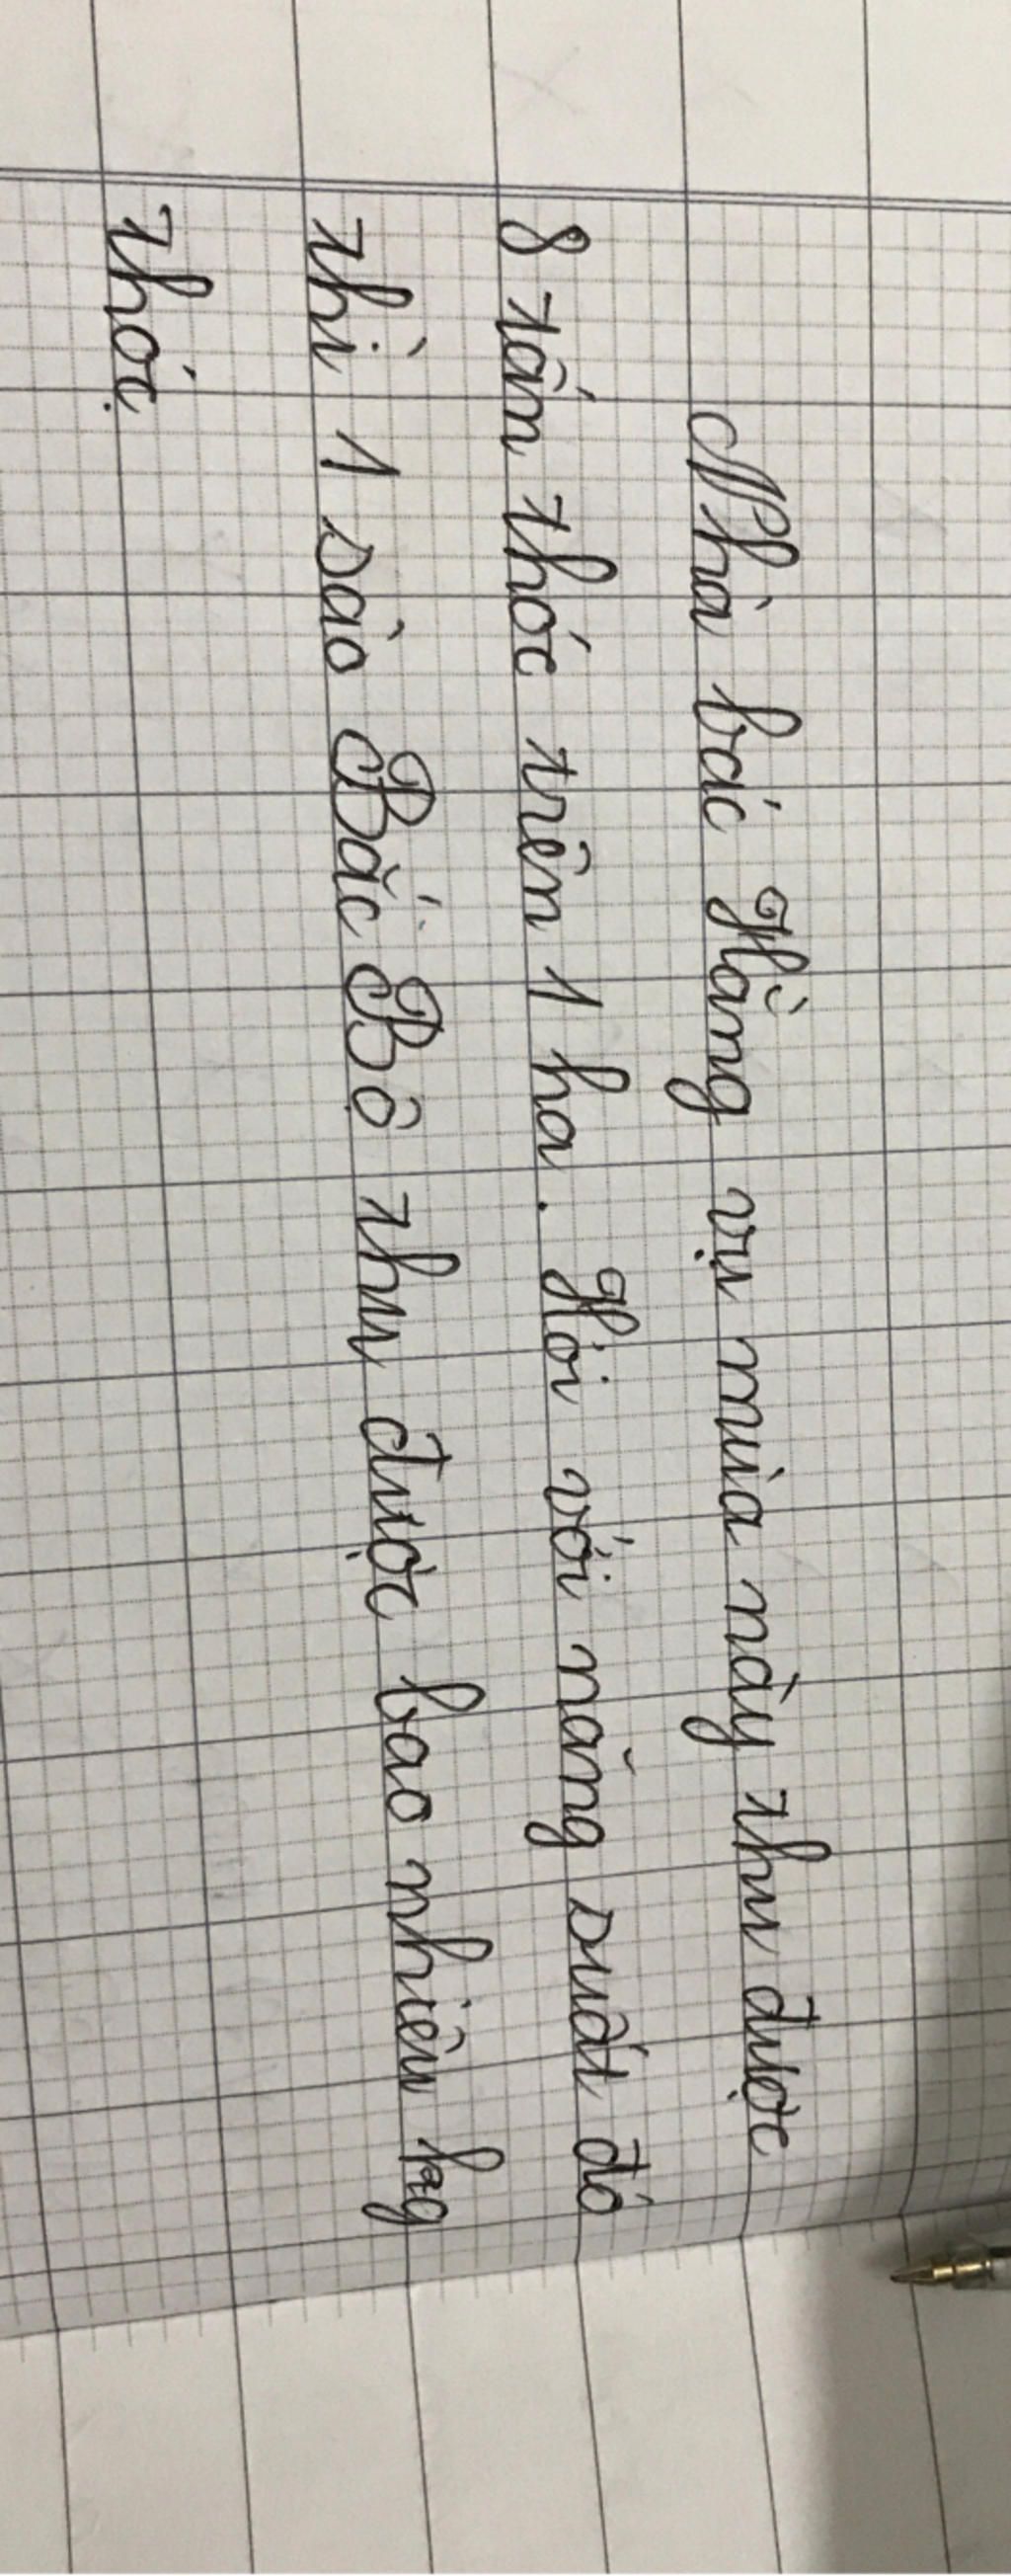 Nhà bác Hằng vụ mùa này thu được
8 tấn thóc trên 1 ha. Hỏi với năng suất đó
thì 1 sào Bắc Bộ thu được bao nhiêu kg
thóc.